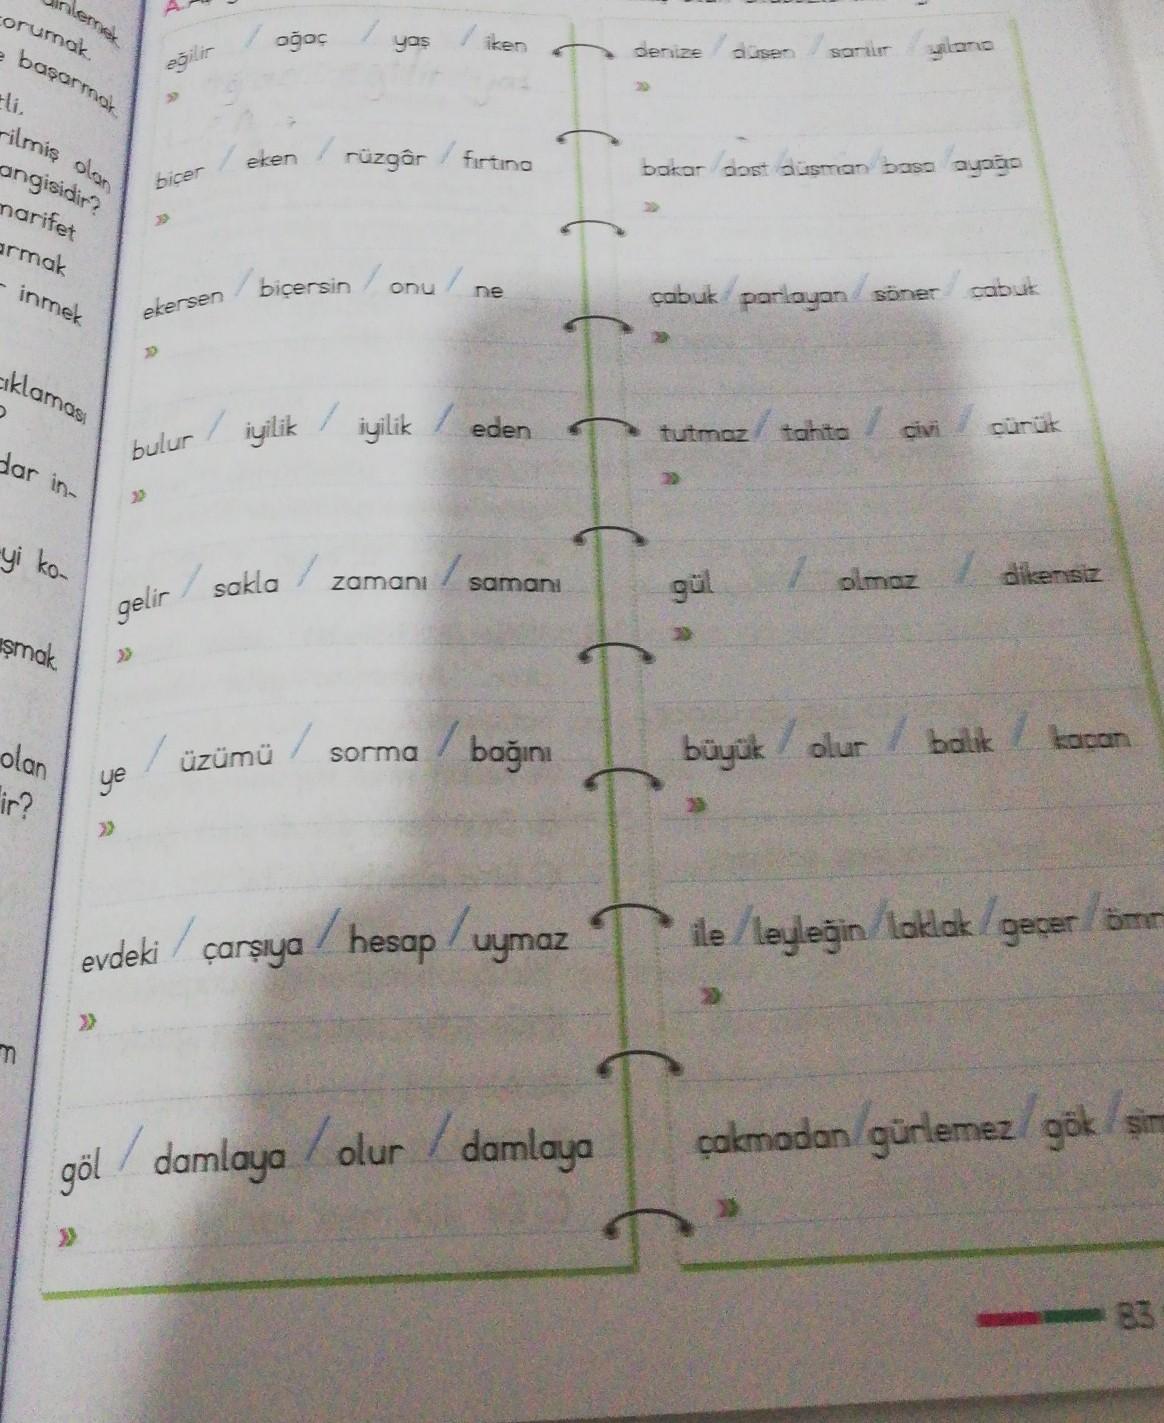 orumak.
başarmak
rilmiş olan
angisidir?
marifet
armak
inmek
ıklaması
dar in-
yi ko-
şmak.
olan
ir?
eğilir / ağaç / yaş / iken
»
biçer / eken / rüzgâr / fırtına
»
ekersen / biçersin / onu / ne
»
bulur / iyilik / iyilik / eden
»
gelir / sakla / zamanı / samanı
»
ye / üzümü / sorma / bağını
»
evdeki / çarşıya / hesap / uymaz
»
göl / damlaya / olur / damlaya
»
denize / düşen / sarılır / yılana
»
bakar / dost / düşman / başa / ayağa
»
çabuk / parlayan / söner / çabuk
»
tutmaz / tahta / çivi / çürük
»
gül / olmaz / dikensiz
»
büyük / olur / balık / kaçan
»
ile / leyleğin / laklak / geçer / ömr
»
çakmadan / gürlemez / gök / şim
»
83